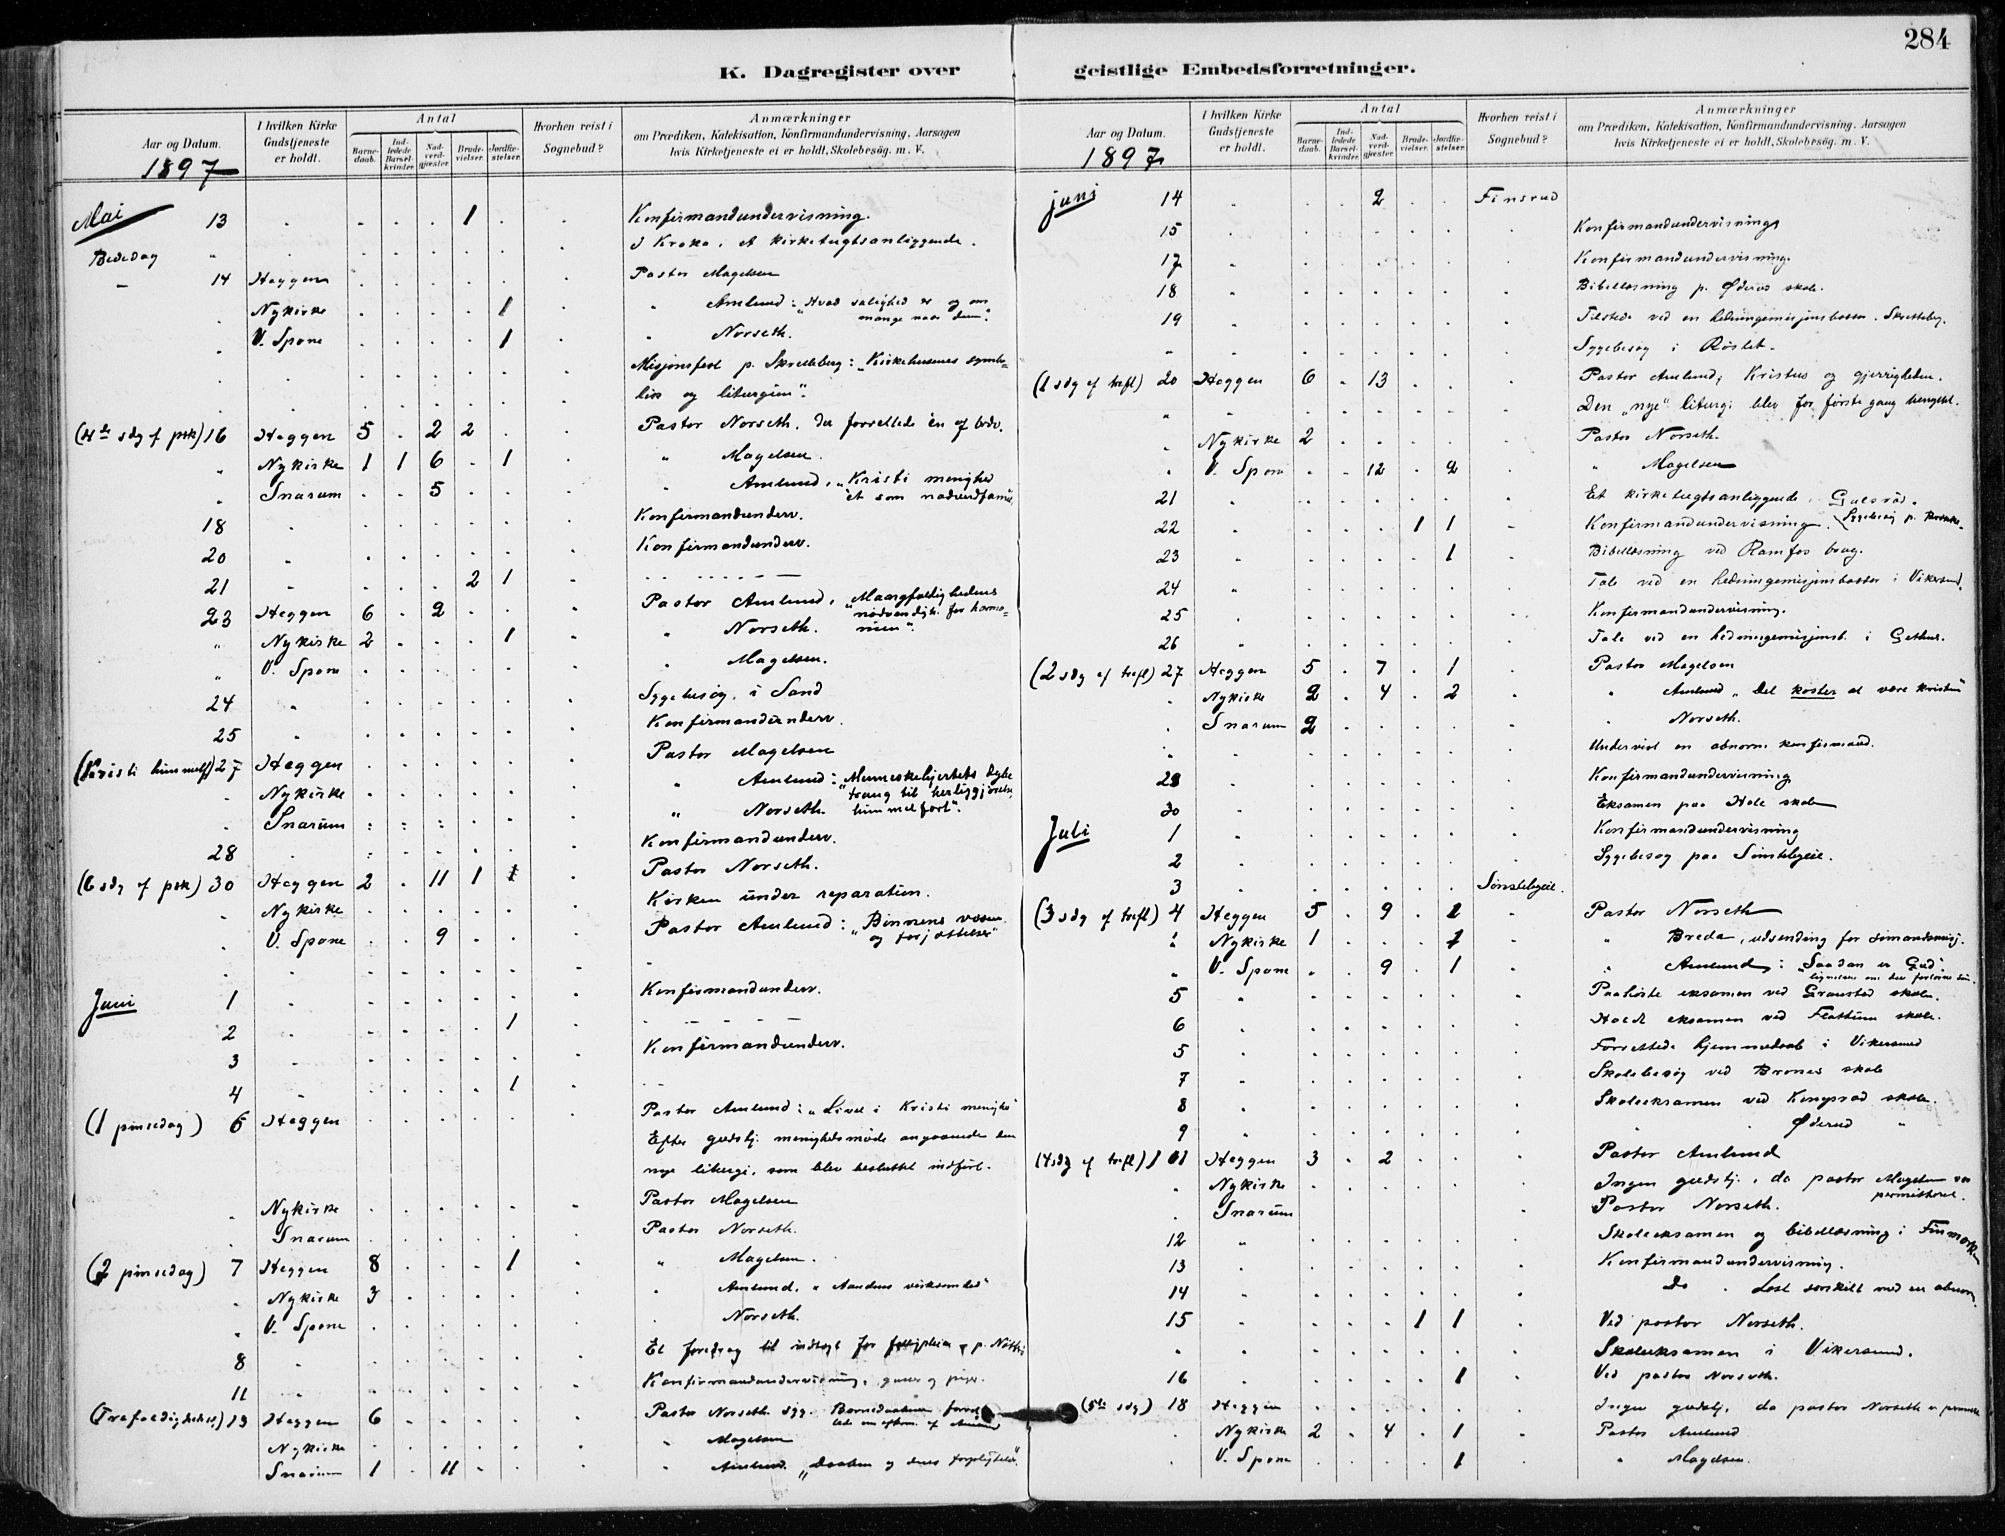 284
K. Dagregister over geistlige Embedsforretninger.
Aar og Datum. I hvilken Kirke Gudstjeneste er holdt. Antal Barnedaab. Indledede Barselkvinder. Nadverdgjæster. Brudevielser. Jordfæstelser. Hvorhen reist i Sognebud? Anmærkninger om Prædiken, Katekisation, Konfirmandundervisning, Aarsagen hvis Kirketjeneste ei er holdt, Skolebesøg. m. V.
1897
Mai 13 1 Konfirmandundervisning.
" I Kroka. et kirketugtsanliggende.
Bededag 14 Heggen Pastor Magelsen
Nykirke 1 " Amlund: "Hvad salighed er og om mange naar dem".
V. Spone 1 " Norseth.
Misjonsfest p. Skretteberg: "Kirkehusenes symbo-
lik og liturgien".
(4de sdg f psk) 16 Heggen 5 . 2 2 Pastor Norseth. der forrettede én af brdv.
Nykirke 1 1 6 . 1 " Magelsen.
Snarum 5 " Amlund. "Kristi menighed ét som nadverdfamilie
18 Konfirmandunderv.
20 Konfirmandunderv.
21 2 1
23 Heggen 6 . 2 Pastor Amlund. "Mangfoldighedens nødvendigh. for harmo-
Nykirke 2 1 " Norseth. nien".
V. Spone " Magelsen.
24 Sygebesøg. i Sand
25 Konfirmandunderv.
(Kristi himmelf) 27 Heggen Pastor Magelsen
Nykirke " Amlund: "Menneskehjertets dybe trang til herliggjørelse,
Snarum " Norseth himmelfart".
28 Konfirmandunderv.
(6 sdg f psk) 30 Heggen 2 . 11 1 1 Pastor Norseth.
Nykirke Kirken under reparation.
V. Spone 9 Pastor Amlund: "Bønnens væsen og forjættelser"
Juni 1 Konfirmandunderv.
2 1
3 Konfirmandunderv.
4 1
(1 pinsedag) 6 Heggen Pastor Amlund: "Livet i Kristi menighed"
Efter gudstj. menighedsmøde angaaende den
nye liturgi, som blev besluttet indført.
Nykirke Pastor Magelsen
Snarum Pastor Norseth.
(2 pinsedag) 7 Heggen 8 1 " Magelsen.
Nykirke 3 " Amlund. "Aandens virksomhed"
V. Spone " Norseth.
8 Et foredrag til indtægt for
11 Konfirmandundervisning, gutter og piger.
(Trefoldighedsd) 13 Heggen 6 Pastor Norseth
Nykirke " Magelsen
Snarum 1 . 11 " Amlund. "Daaben og dens forpligtelse".
Aar og Datum. I hvilken Kirke Gudstjeneste er holdt. Antal Barnedaab. Indledede Barselkvinder. Nadverdgjæster. Brudevielser. Jordfæstelser. Hvorhen reist i Sognebud? Anmærkninger om Prædiken, Katekisation, Konfirmandundervisning, Aarsagen hvis Kirketjeneste ei er holdt, Skolebesøg. m. V.
1897
juni 14 2 Finsrud
15 Konfirmandundervisning
17 Konfirmandundervisning.
18 Bibellæsning p. Øderud skole.
19 Tilstede ved en hedningemisjonsbasar. Skretteberg.
" Sygebesøg i Røslet.
(1 sdg ef trefl) 20 Heggen 6 . 13 Pastor Amlund; Kristus og gjerrigheden.
" Den "nye" liturgi blev for første gang benyttet.
Nykirke 2 Pastor Norseth.
V. Spone 12 . 2 " Magelsen
21 Et kirketugtsanliggende. Gulsrud.
22 1 1 Konfirmandundervisning.
23 1 Bibellæsning ved Ramfos brug.
24 Tale ved en hedningemisjonsbasar i Vikersund.
25 Konfirmandundervisning.
26 Tale ved en hedningemisjonsb. i Gethus.
(2 sdg ef trefl) 27 Heggen 5 . 7 . 1 Pastor Magelsen
Nykirke 2 . 4 . 2 " Amlund "Det koster at være kristen"
Snarum 2 " Norseth.
Undervist en abnorm konfirmand.
29 Konfirmandundervisning
30 Eksamen paa Hole skole
Juli 1 Konfirmandundervisning
2 Sygebesøg paa Sønstebyeie.
3 Sønstebyeie.
(3 sdg ef trefl) 4 Heggen 5 . 9 . 1 Pastor Norseth
Nykirke 1 1 " Breda, udsending for sømandsmisj.
V. Spone 9 . 1 " Amlund: "Saadan er Gud", lignelsen om den fortabte søn
5 Paahørte eksamen ved Gravstad skole.
6 Holdt eksamen ved Flattum skole.
5 Forrettede hjemmedaab i Vikersund
7 Skolebesøg ved Brones skole
8 Skoleeksamen ved Kongsrud skole.
9 " " Øderud "
(4 sdg ef trefl) 11 Heggen 3 . 2 Pastor Amlund
Nykirke Ingen gudstj., da pastor Magelsen var permitteret.
Snarum Pastor Norseth.
12 Skoleeksamen og bibellæsning i Finmarken
13 Konfirmandundervisning.
14 Do . Læst særskilt med en abnorm.
15 1 1 Ved pastor Norseth.
" Skoleeksamen i Vikersund.
16 1 Ved pastor Norseth.
(5te sdg) 18 Heggen Ingen gudstj. da pastor Norseth
Nykirke 2 . 4 . 1 Pastor Amlund
V. Spone 1 " Magelsen.